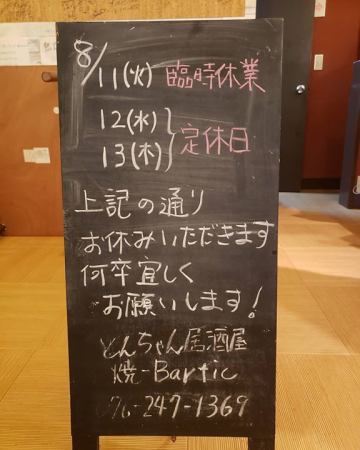 8/11(火) 臨時休業
12(水)
13(木) 定休日
上記の通り
お休みいただきます
何卒宜しく
お願いします!
とんちゃん居酒屋
焼-Bartic
076-247-1369